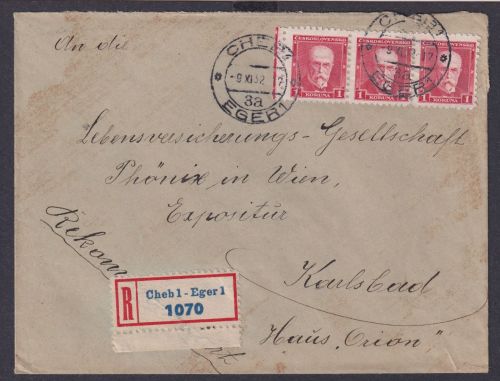 An die
CHEB 1
-9.XI.32
3a
EGER 1
ČESKOSLOVENSKO
1 KORUNA 1
ČESKOSLOVENSKO
1 KORUNA 1
ČESKOSLOVENSKO
1 KORUNA 1
CHEB 1
3a
EGER 1
Lebensversicherungs-Gesellschaft
Phönix in Wien,
Expositur
Karlsbad
Haus „Orion"
Rekom
R Cheb 1 - Eger 1
1070